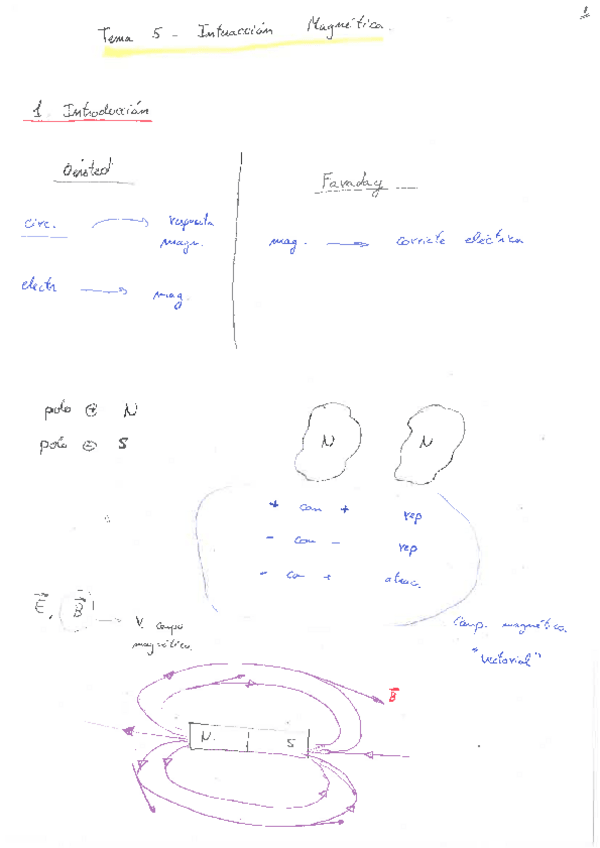 1
Tema 5 - Interacción Magnética.
1 Introducción
Oersted
Faraday
circ. → respuesta
magn.
mag. → corriete eléctrica
electr → mag.
polo ⊕ N
polo ⊖ S
N N
+ con + rep
- con - rep
- con + atrac.
E, B → V. campo
magnético.
Camp. magnético.
"vectorial"
B
N S